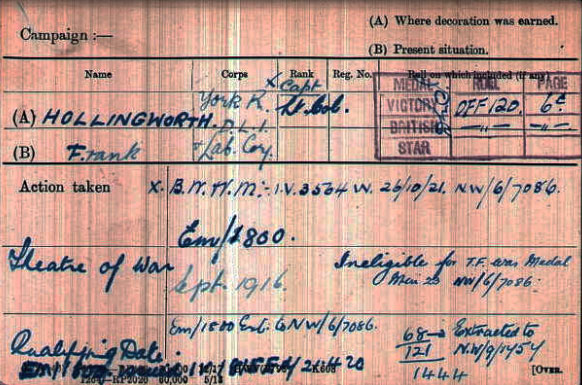 (A) Where decoration was earned.
Campaign :—
(B) Present situation.
Name Corps Rank Reg. No. Roll on which included (if any)
MEDAL ROLL PAGE
York R. x Capt
(A) HOLLINGWORTH D.L.I. Lt. Col. VICTORY OFF 120. 6c
BRITISH -"- -"-
(B) Frank Lab. Corps STAR
Action taken x. B.W. & M:- I.V. 3564 W. 26/10/21. N.W/6/7086.
Em/1.800.
Theatre of War Ineligible for T.F. War Medal
Sept. 1916. NW/6/7086.
Em/1500 Ent. to NW/6/7086.
Qualifying Date. 68 Extracted to
121 N.W/9/1454
1444 [OVER.
60,000 5/13 K608